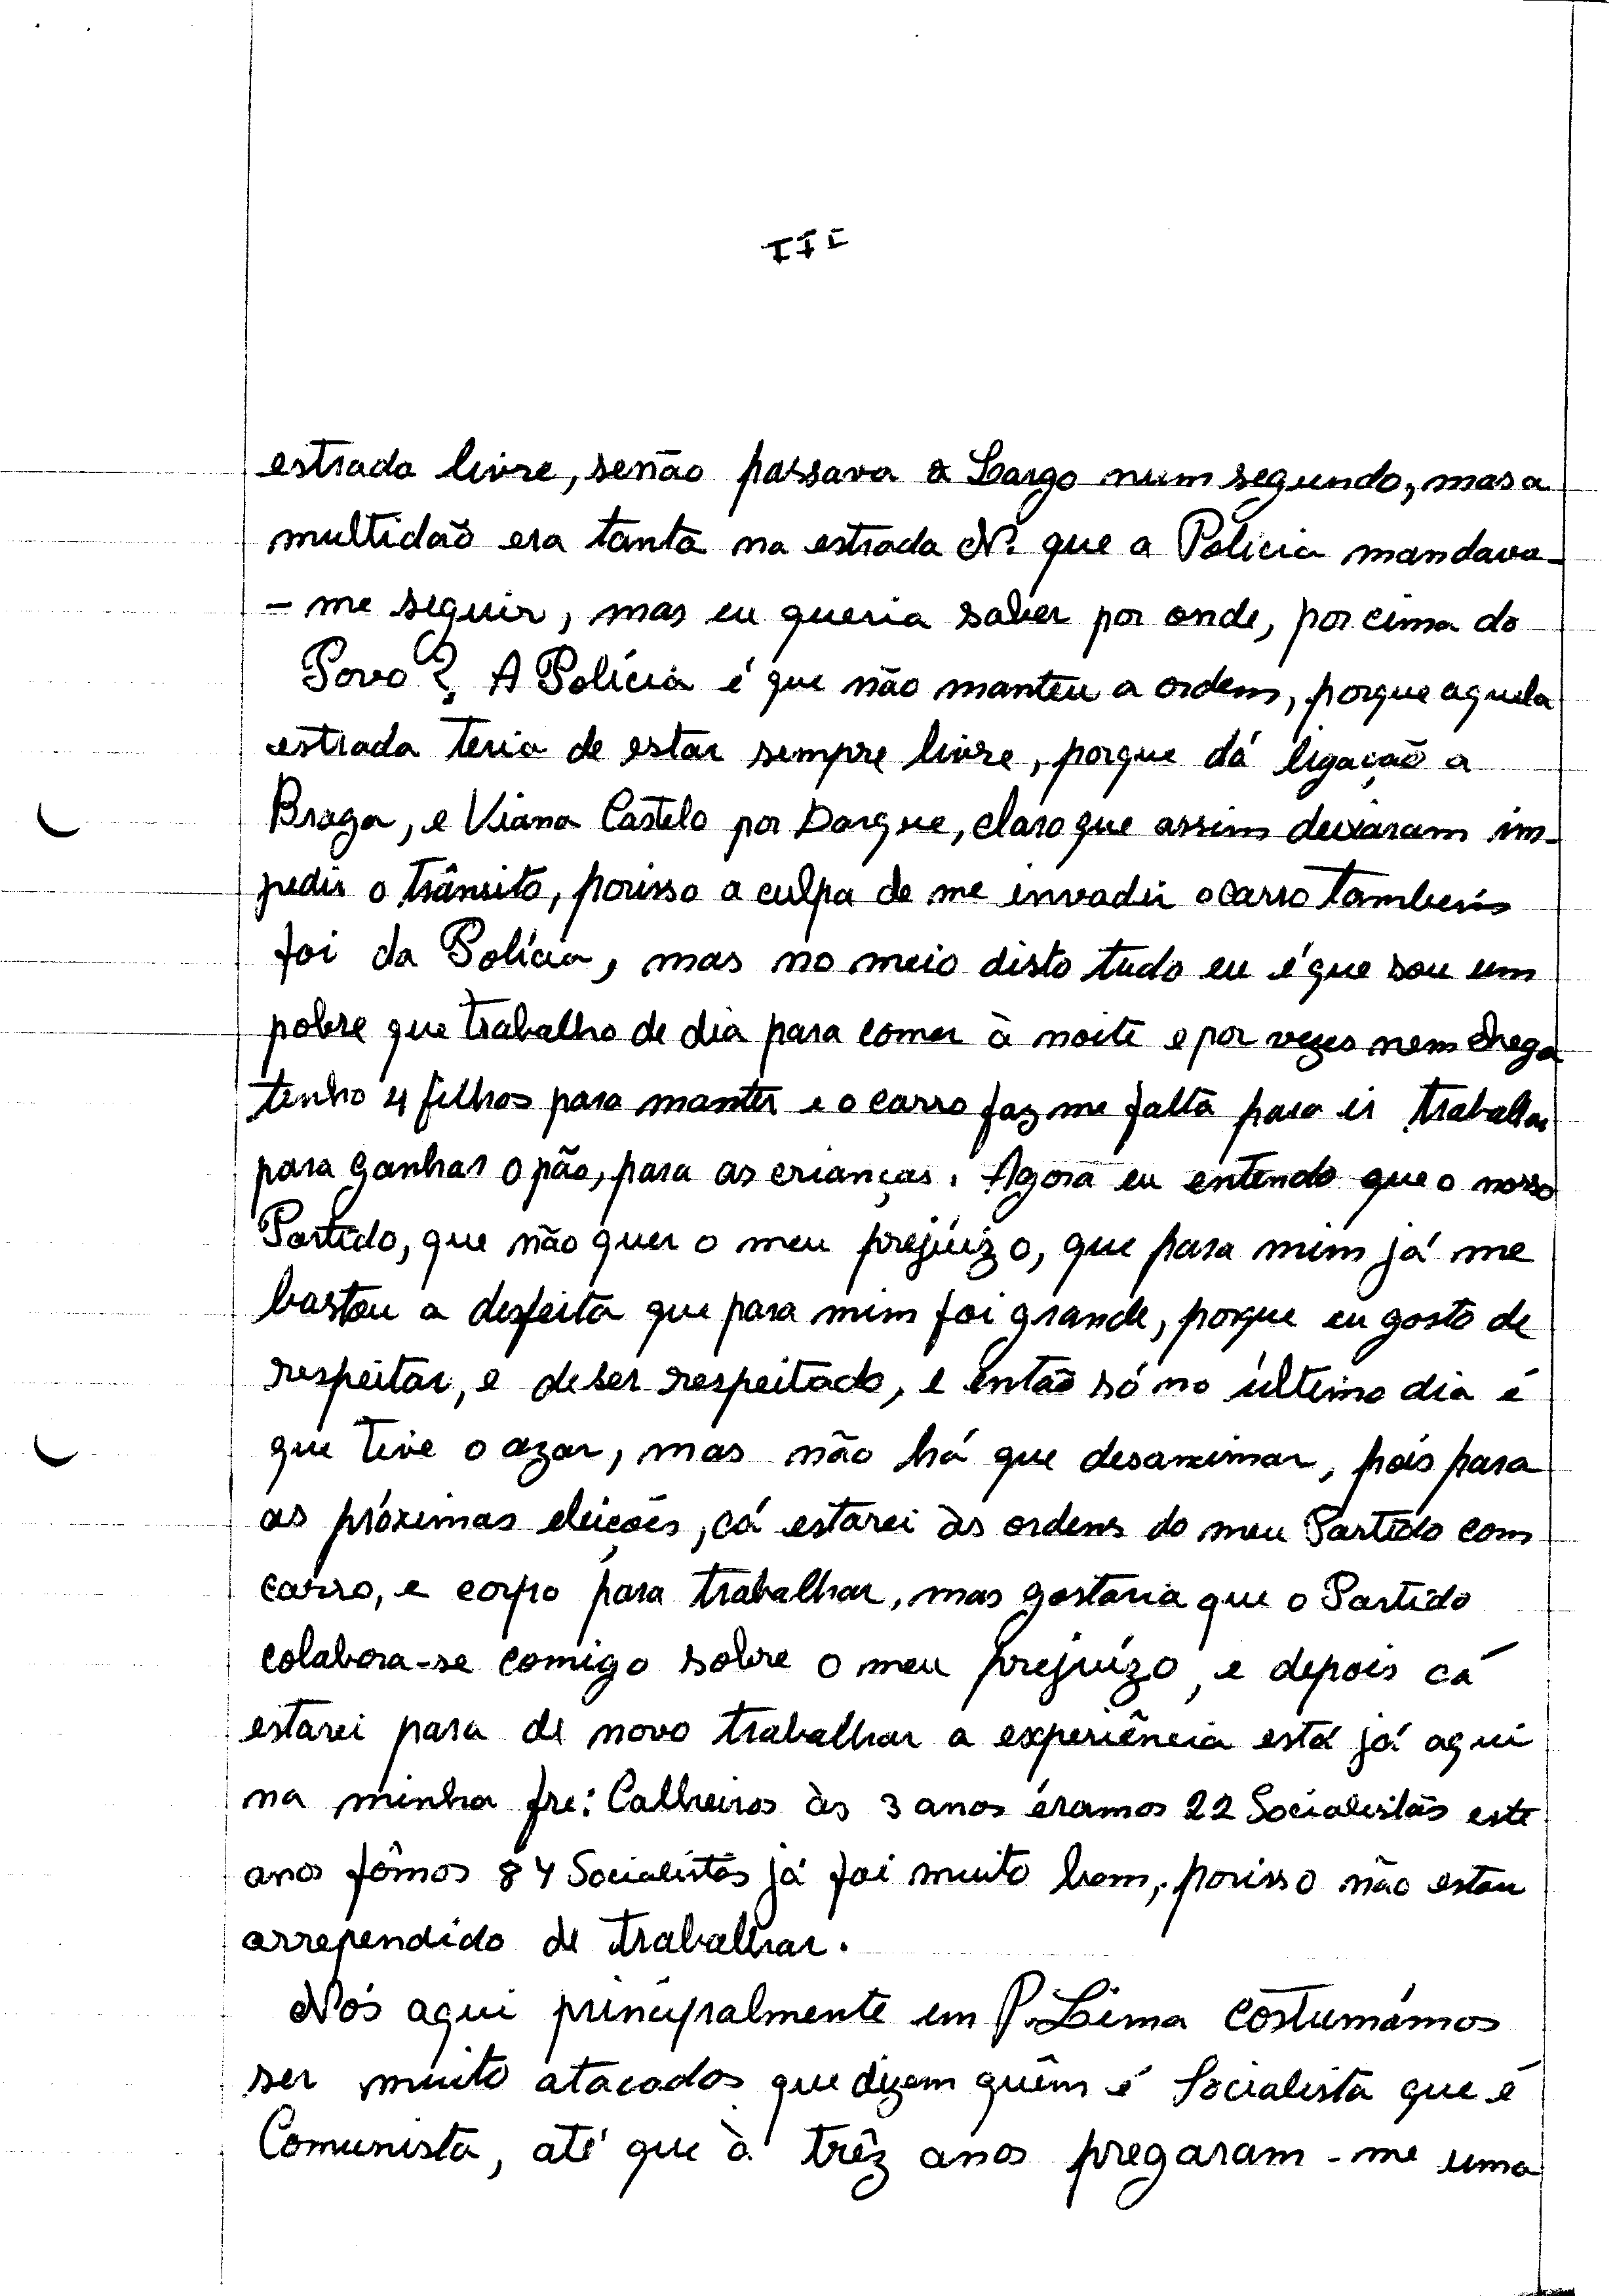 III
estrada livre, senão passava a Largo num segundo, mas a
multidão era tanta na estrada N. que a Polícia mandava-
-me seguir, mas eu queria saber por onde, por cima do
Povo?, A Polícia é que não manteu a ordem, porque aquela
estrada teria de estar sempre livre, porque dá ligação a
Braga, e Viana Castelo por Darque, claro que assim deixaram im-
pedir o trânsito, porisso a culpa de me invadir o carro também
foi da Polícia, mas no meio disto tudo eu é que sou um
pobre que trabalho de dia para comer à noite e por vezes nem chega
tenho 4 filhos para manter e o carro faz me falta para ir trabalhar
para ganhar o pão, para as crianças. Agora eu entendo que o nosso
Partido, que não quer o meu prejúizo, que para mim já me
bastou a desfeita que para mim foi grande, porque eu gosto de
respeitar, e de ser respeitado, e então só no último dia é
que tive o azar, mas não há que desanimar, pois para
as próximas eleições, cá estarei às ordens do meu Partido com
carro, e corpo para trabalhar, mas gostaria que o Partido
colabora-se comigo sobre o meu prejuízo, e depois cá
estarei para de novo trabalhar a experiência está já aqui
na minha fre: Calheiros às 3 anos éramos 22 Socialistas este
ano fômos 84 Socialistas já foi muito bom, porisso não estou
arrependido de trabalhar.
Nós aqui principalmente em P. Lima costumámos
ser muito atacados que dizem quêm é Socialista que é
Comunista, até que à três anos pregaram-me uma